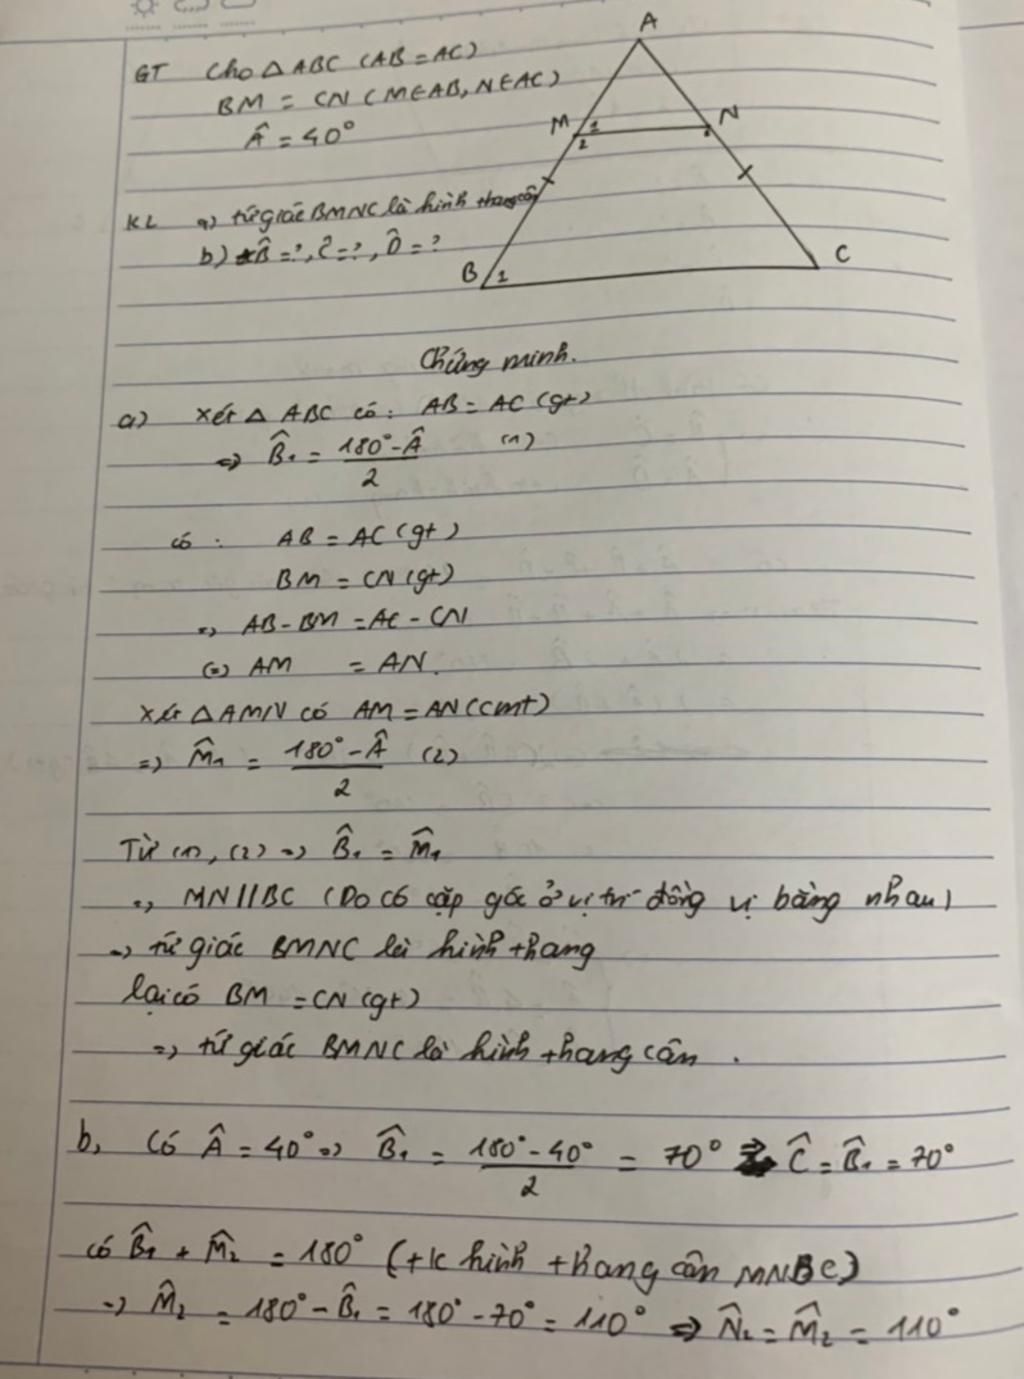 GT Cho △ABC (AB = AC)
BM = CN (M∈AB, N∈AC)
Â = 40°
KL a) tứ giác BMNC là hình thang cân
b) B̂ = ?, Ĉ = ?, D̂ = ?
A
M 1 N
2 2
B 1 C
Chứng minh.
a) Xét △ ABC có: AB = AC (gt)
=> B̂₁ = (180° - Â)/2 (1)
có: AB = AC (gt)
BM = CN (gt)
=> AB - BM = AC - CN
(=) AM = AN.
Xét △AMN có AM = AN (cmt)
=> M̂₁ = (180° - Â)/2 (2)
Từ (1), (2) => B̂₁ = M̂₁
=> MN//BC (Do có cặp góc ở vị trí đồng vị bằng nhau)
=> tứ giác BMNC là hình thang
lại có BM = CN (gt)
=> tứ giác BMNC là hình thang cân.
b, Có Â = 40° => B̂₁ = (180° - 40°)/2 = 70° => Ĉ = B̂₁ = 70°
có B̂₁ + M̂₂ = 180° (t/c hình thang cân MNBC)
=> M̂₂ = 180° - B̂₁ = 180° - 70° = 110° => N̂₂ = M̂₂ = 110°